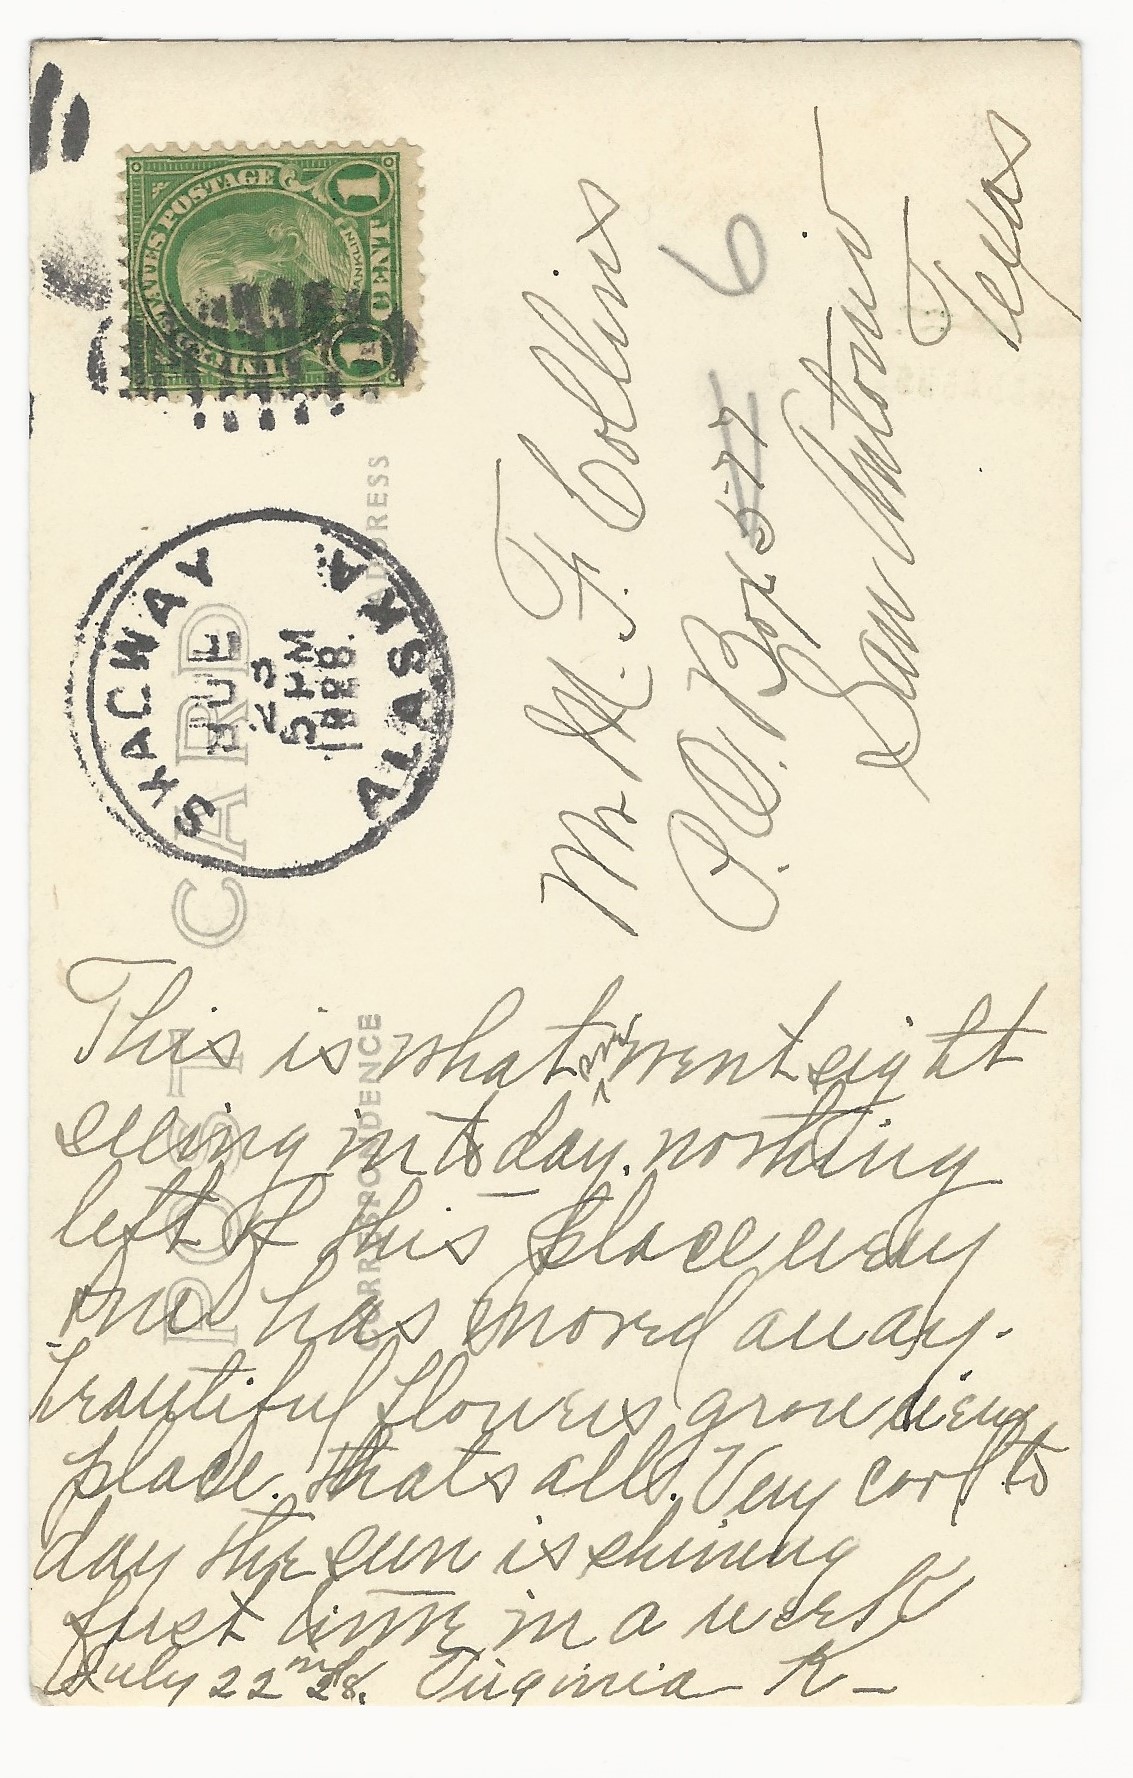 UNITED STATES POSTAGE
FRANKLIN
1 CENT 1
SKAGWAY
JUL
23
5 PM
1928.
ALASKA
POST CARD
CORRESPONDENCE
ADDRESS
Mr M. F. Collins
P. O. Box 577 6
San Antonio
Texas
This is what we went sight
seeing in to day. nothing
left of this place every
one has moved away.
beautiful flowers grow every
place. thats all. Very cool to
day the sun is shining
first time in a week
July 22nd 28. Virginia K